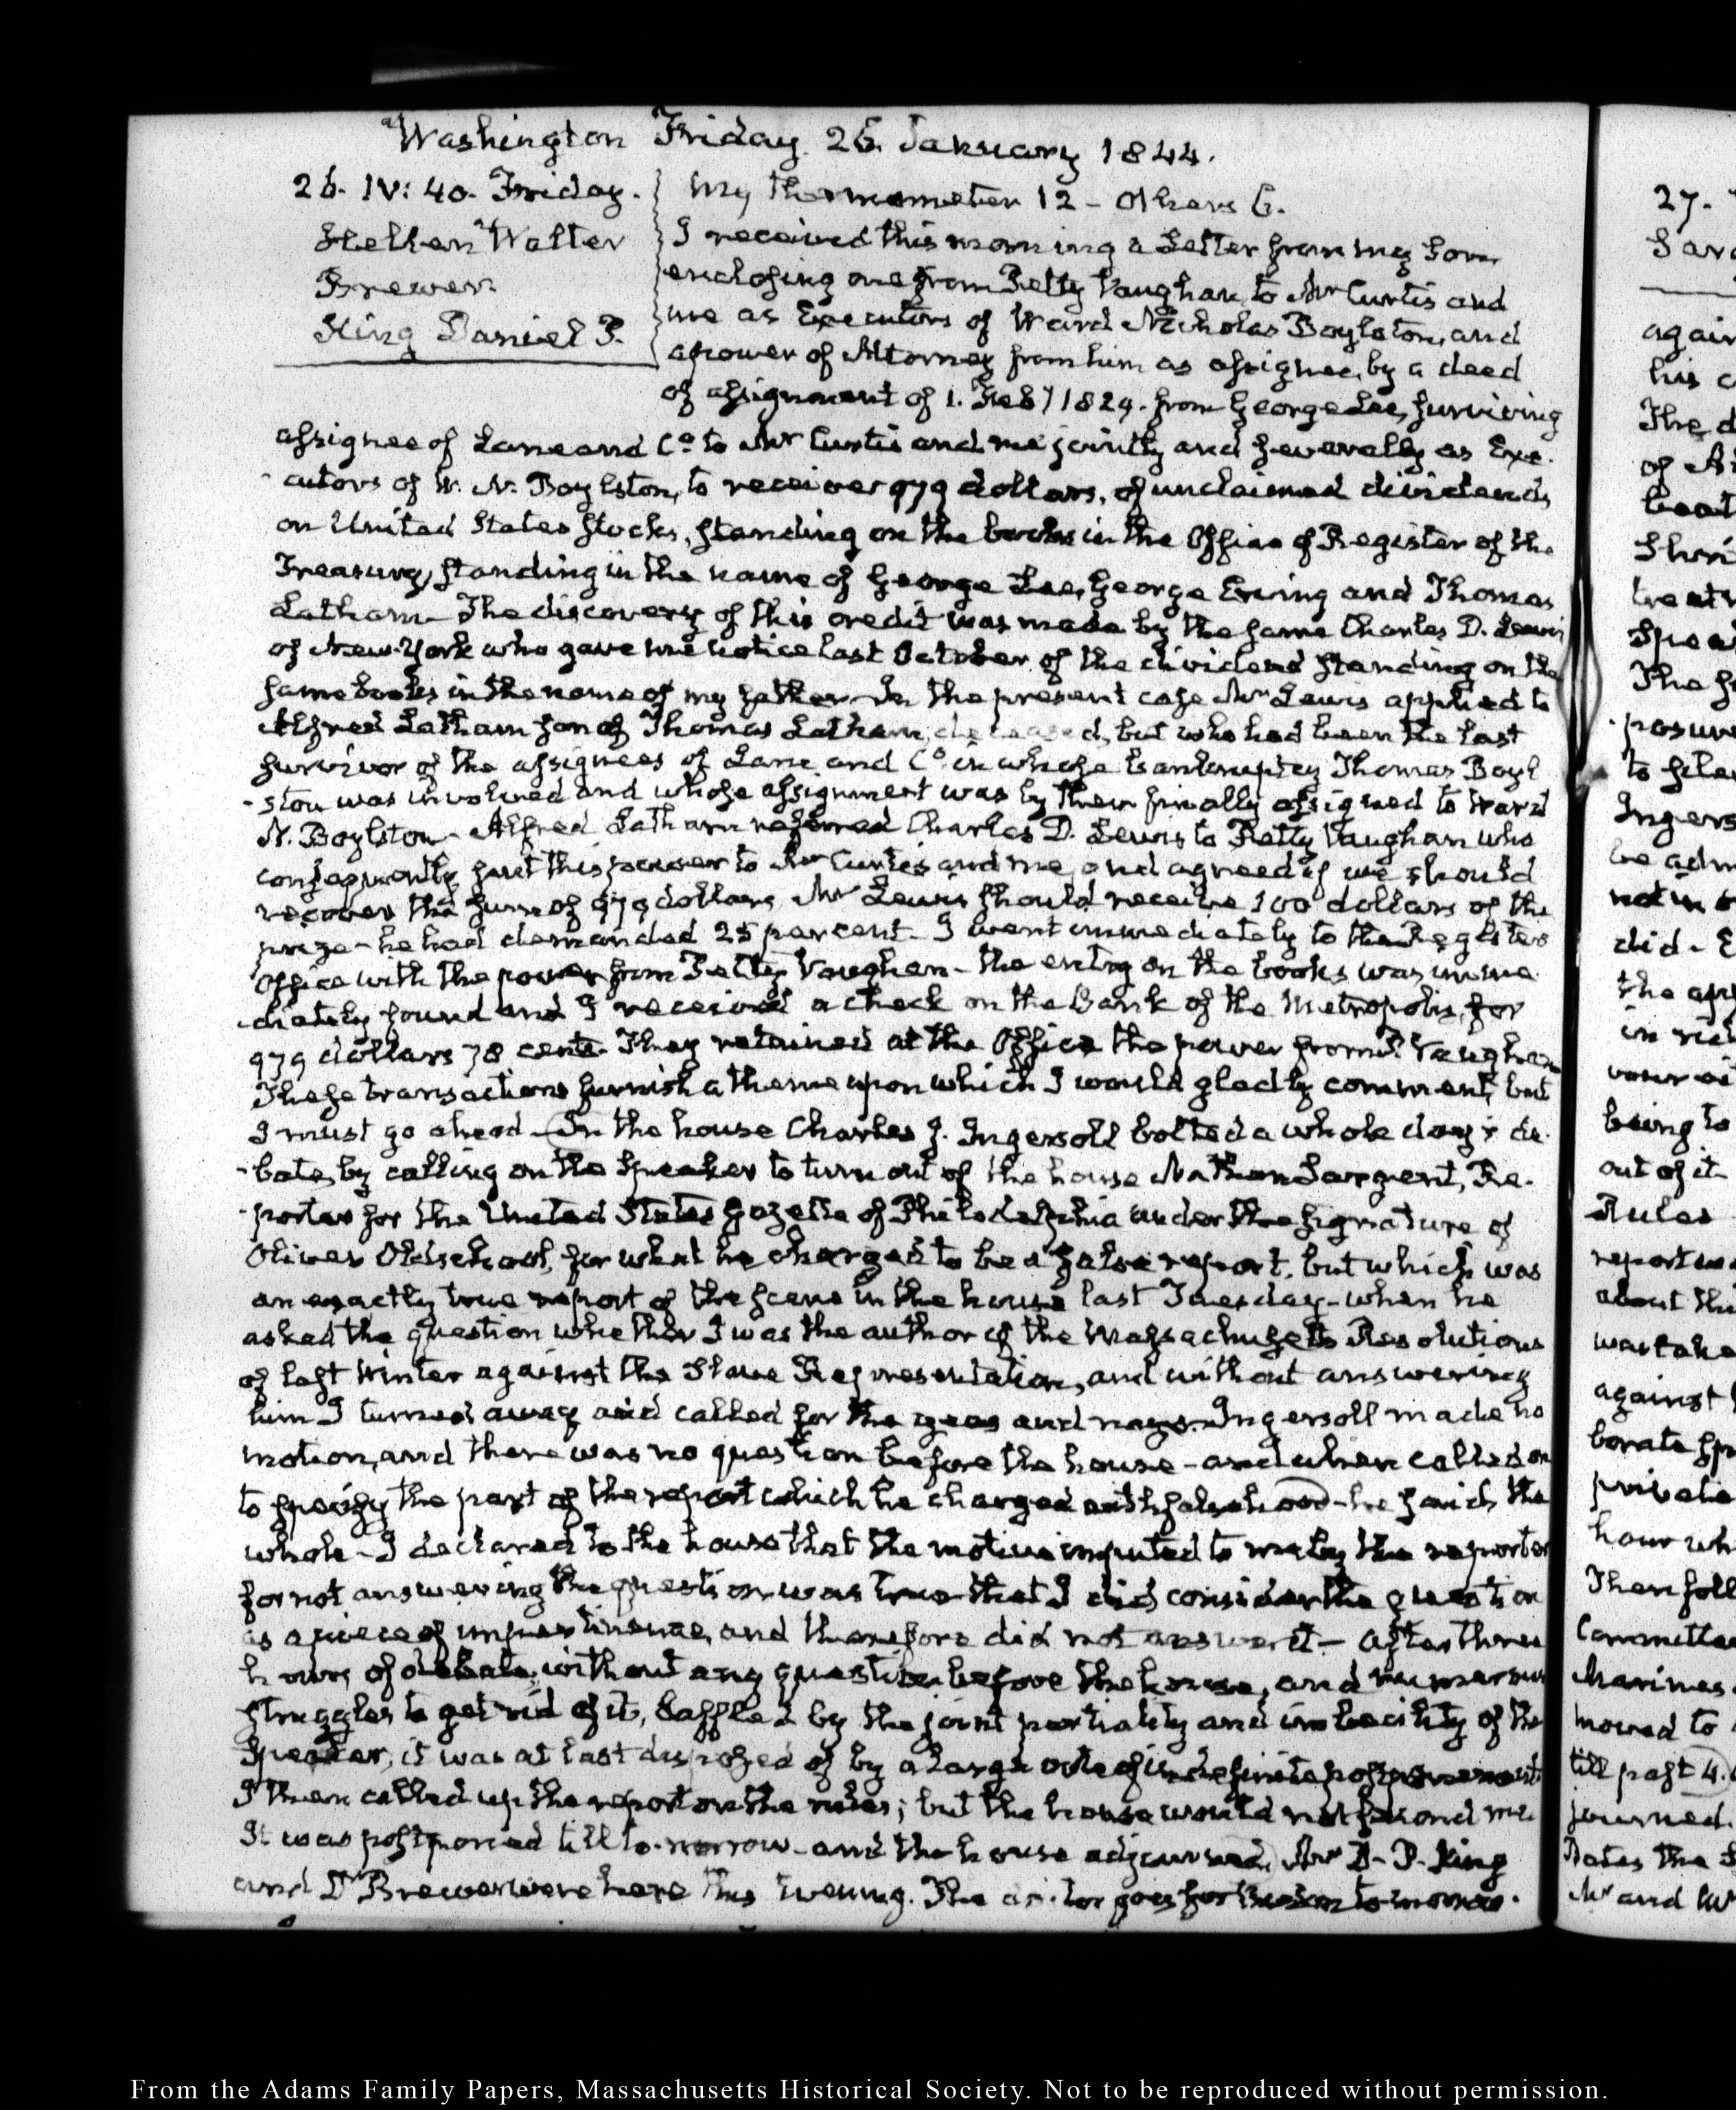 Washington Friday 26. January 1844.
26. IV: 40. Friday.
Hellen Walter
Brewer
King Daniel P.
My Thermometer 12 - Others 6.
I received this morning a Letter from my Son,
enclosing one from Petty Vaughan, to Mr Curtis and
me as Executors of Ward Nicholas Boylston, and
a power of Attorney from him as assignee, by a deed
of assignment of 1. Feby 1829. from George Lee, surviving
assignee of Lane and Co. to Mr Curtis and me jointly and severally as Exe-
-cutors of W. N. Boylston, to receive 979 dollars, of unclaimed dividends
on United States Stocks, standing on the books in the Office of Register of the
Treasury, standing in the name of George Lee, George Erving and Thomas
Latham. The discovery of this credit was made by the same Charles D. Lewis
of New-York who gave me notice last October, of the dividend standing on the
same books in the name of my father. In the present case Mr Lewis applied to
Alfred Latham son of Thomas Latham, deceased, but who had been the last
survivor of the assignees of Lane and Co. in whose bankruptcy Thomas Boyl-
-ston was involved and whose assignment was by them finally assigned to Ward
N. Boylston - Alfred Latham referred Charles D. Lewis to Petty Vaughan who
consequently sent this power to Mr Curtis and me, and agreed if we should
recover the sum of 979 dollars, Mr Lewis should receive 100 dollars of the
prize - he had demanded 25 per cent. I went immediately to the Register's
Office with the power from Petty Vaughan - the entry on the books was imme-
-diately found and I received a check on the Bank of the Metropolis, for
979 dollars 78 cents. They retained at the Office the power from P. Vaughan
These transactions furnish a theme upon which I would gladly comment, but
I must go ahead - In the house Charles J. Ingersoll bolted a whole day's de-
-bate, by calling on the Speaker to turn out of the house Nathan Sargent, Re-
-porter for the United States Gazette of Philadelphia under the signature of
Oliver Oldschool, for what he charged to be a false report, but which was
an exactly true report of the scene in the house last Tuesday - when he
asked the question whether I was the author of the Massachusetts Resolutions
of last Winter against the Slave Representation, and without answering
him I turned away and called for the yeas and nays. Ingersoll made no
motion, and there was no question before the house - and when called on
to specify the part of the report which he charged with falsehood - he said, the
whole - I declared to the house that the motive imputed to me by the reporter
for not answering the question was true - that I did consider the question
as a piece of impertinence, and therefore did not answer it - after three
hours of debate, without any question before the house, and numerous
struggles to get rid of it, baffled by the joint partiality and imbecility of the
Speaker, it was at last disposed of by a large vote of indefinite postponement
I then called up the report on the rules; but the house would not second me
It was postponed till to-morrow - and the house adjourned. Mr D. P. King
and Dr Brewer were here this evening. The goes for Boston to-morrow.
27.
again
his c
The d
of
boat
did - E
the app
in
being to
out of it
Rules
report
about the
was take
against
private
hour wh
Then foll
Committee
Marines
moved to
till past 4.
journed.
Bates the
Mr and
From the Adams Family Papers, Massachusetts Historical Society. Not to be reproduced without permission.